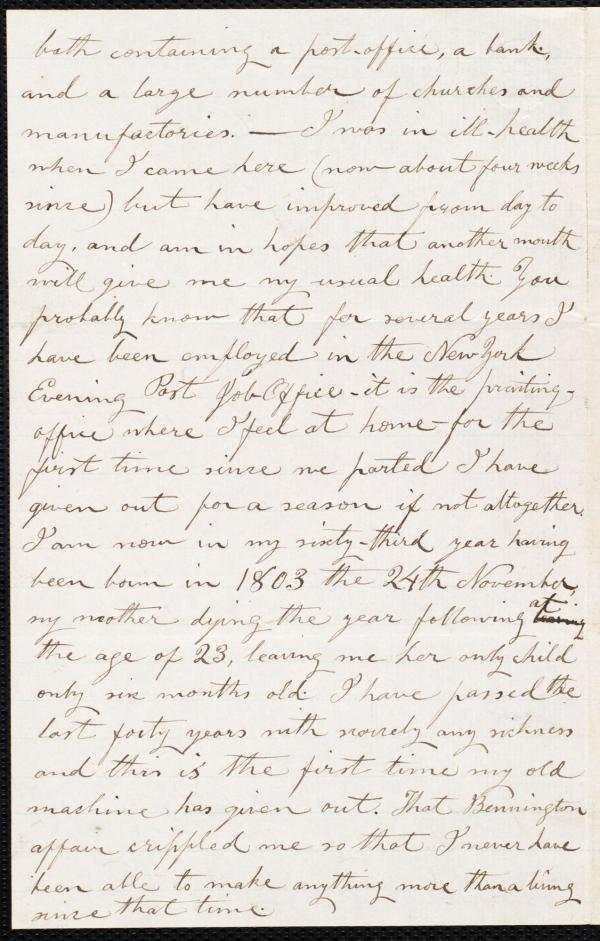 both containing a post-office, a bank,
and a large number of churches and
manufactories. — I was in ill-health
when I came here (now about four weeks
since) but have improved from day to
day, and am in hopes that another month
will give me my usual health. You
probably know that for several years I
have been employed in the New York
Evening Post Job Office - it is the printing-
office where I feel at home - for the
first time since we parted I have
given out for a season if not altogether.
I am now in my sixty-third year having
been born in 1803 the 24th November,
my mother dying the year following at
the age of 23, leaving me her only child
only six months old. I have passed the
last forty years with scarcely any sickness
and this is the first time my old
machine has given out. That Bennington
affair crippled me so that I never have
been able to make anything more than a living
since that time.